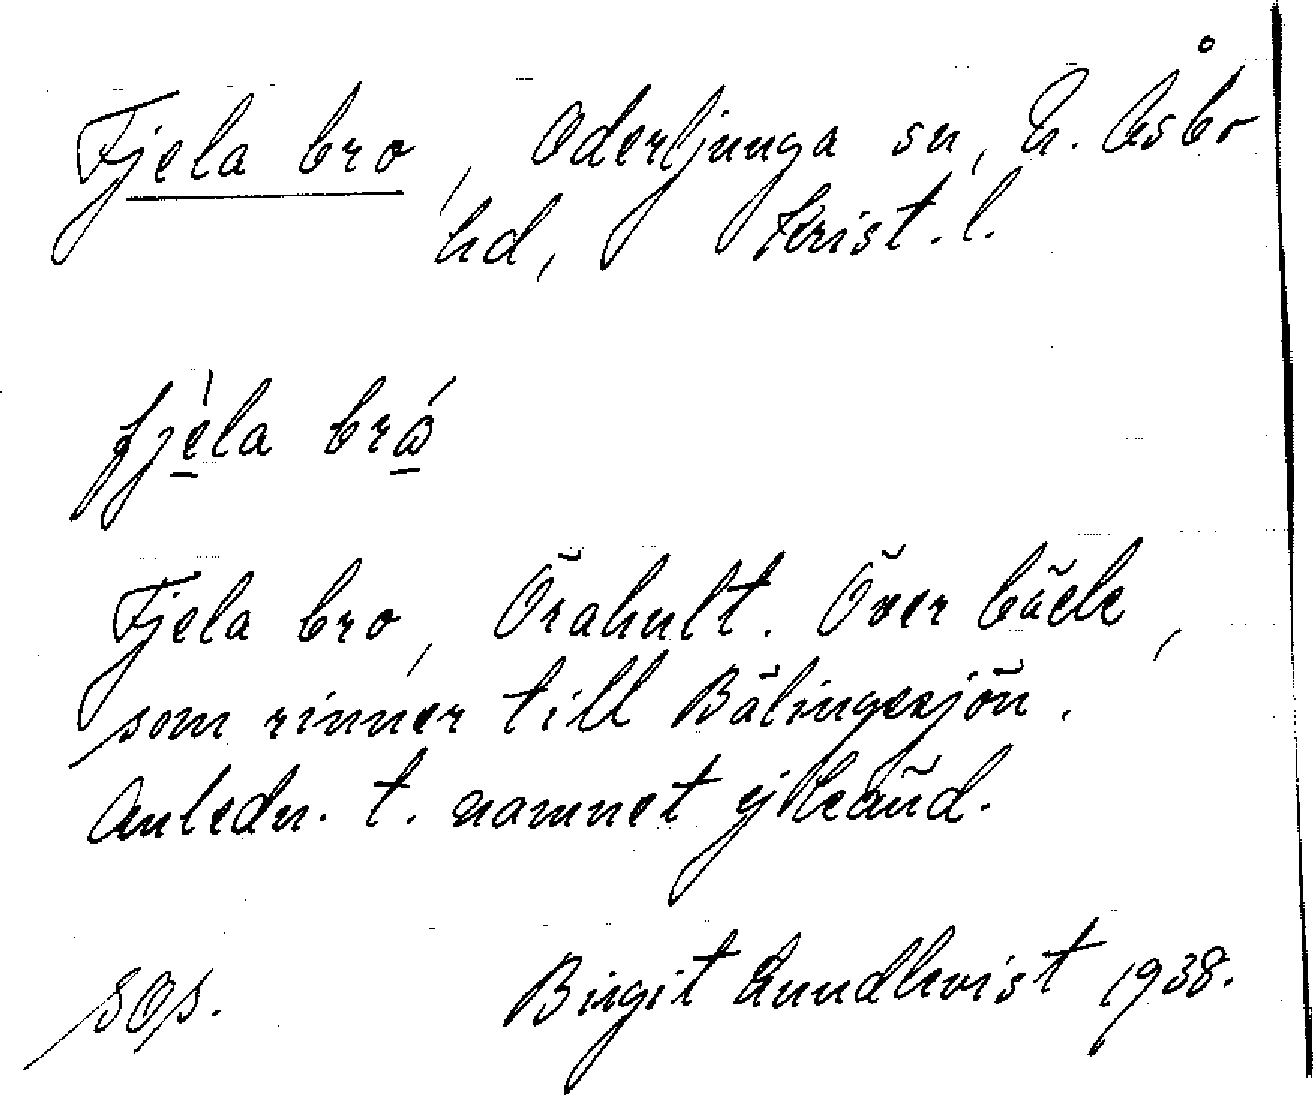 Fjela bro, Oderljunga sn, N. Åsbo
hd, Krist. l.
fjèla bró
Fjela bro, Örahult. Över bäck,
som rinner till Bälingesjön.
Anledn. t. namnet ej känd.
SOS. Birgit Lundkvist 1938.